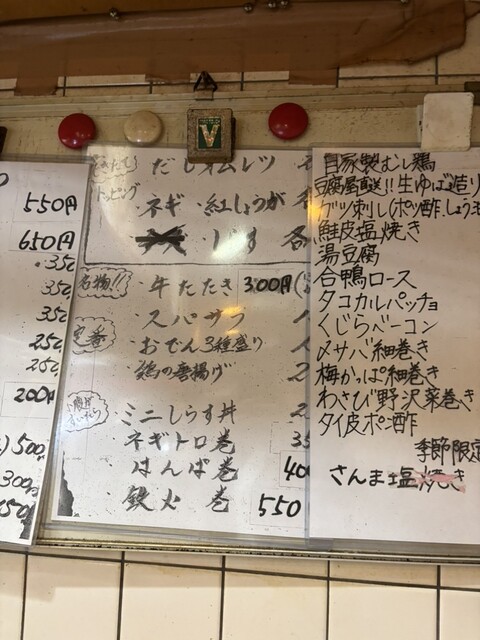 550円
650円
350
350
350
250
250
200円
500円
300円
350
だしオムレツ
トッピング
・ネギ ・紅しょうが 各
各
名物!! ・牛たたき 300円
・スパサラ
定番
・おでん3種盛り
・鶏の唐揚げ
・ミニしらす丼
ネギトロ巻 35
はんぱ巻 40
鉄火巻 550
V
自家製むし鶏
豆腐屋直送!!生ゆば造り
ガツ刺し(ポン酢.しょうゆ
鮭皮塩焼き
湯豆腐
合鴨ロース
タコカルパッチョ
くじらベーコン
〆サバ細巻き
梅かっぱ細巻き
わさび野沢菜巻き
タイ皮ポン酢
季節限定
さんま塩焼き